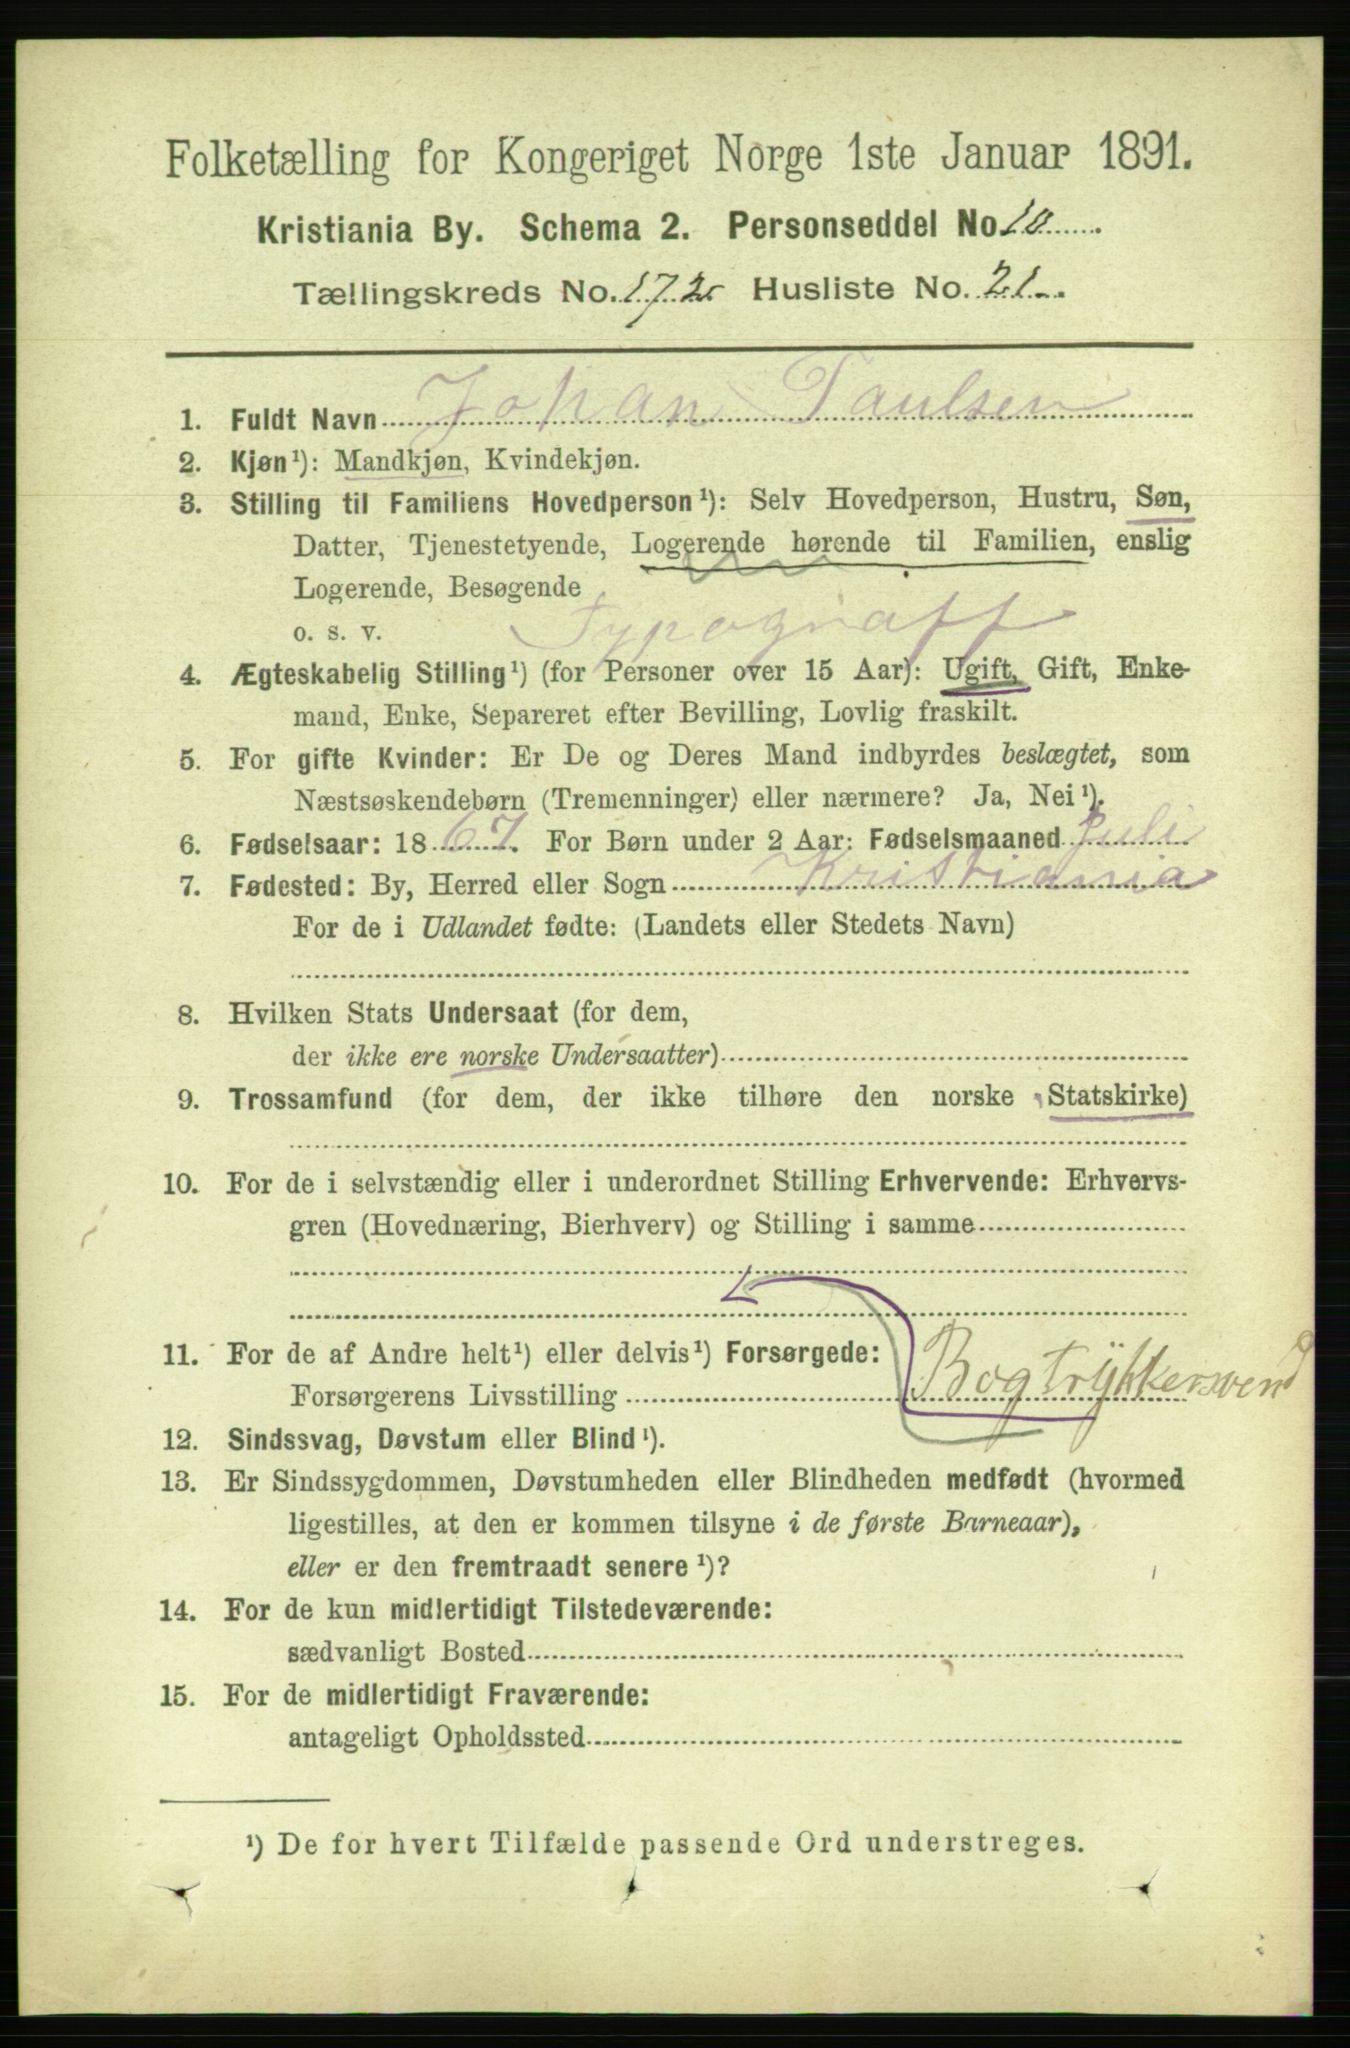 Folketælling for Kongeriget Norge 1ste Januar 1891.
Kristiania By. Schema 2. Personseddel No. 10
Tællingskreds No. 172 Husliste No. 21
1. Fuldt Navn Johan Paulsen
2. Kjøn¹): Mandkjøn, Kvindekjøn.
3. Stilling til Familiens Hovedperson¹): Selv Hovedperson, Hustru, Søn,
Datter, Tjenestetyende, Logerende hørende til Familien, enslig
Logerende, Besøgende
o. s. v. Typograff
4. Ægteskabelig Stilling¹) (for Personer over 15 Aar): Ugift, Gift, Enke-
mand, Enke, Separeret efter Bevilling, Lovlig fraskilt.
5. For gifte Kvinder: Er De og Deres Mand indbyrdes beslægtet, som
Næstsøskendebørn (Tremenninger) eller nærmere? Ja, Nei¹).
6. Fødselsaar: 1867. For Børn under 2 Aar: Fødselsmaaned Juli
7. Fødested: By, Herred eller Sogn Kristiania
For de i Udlandet fødte: (Landets eller Stedets Navn)
8. Hvilken Stats Undersaat (for dem,
der ikke ere norske Undersaatter)
9. Trossamfund (for dem, der ikke tilhøre den norske Statskirke)
10. For de i selvstændig eller i underordnet Stilling Erhvervende: Erhvervs-
gren (Hovednæring, Bierhverv) og Stilling i samme
11. For de af Andre helt¹) eller delvis¹) Forsørgede:
Forsørgerens Livsstilling Bogtrÿkkersvend
12. Sindssvag, Døvstum eller Blind¹).
13. Er Sindssygdommen, Døvstumheden eller Blindheden medfødt (hvormed
ligestilles, at den er kommen tilsyne i de første Barneaar),
eller er den fremtraadt senere¹)?
14. For de kun midlertidigt Tilstedeværende:
sædvanligt Bosted
15. For de midlertidigt Fraværende:
antageligt Opholdssted
¹) De for hvert Tilfælde passende Ord understreges.